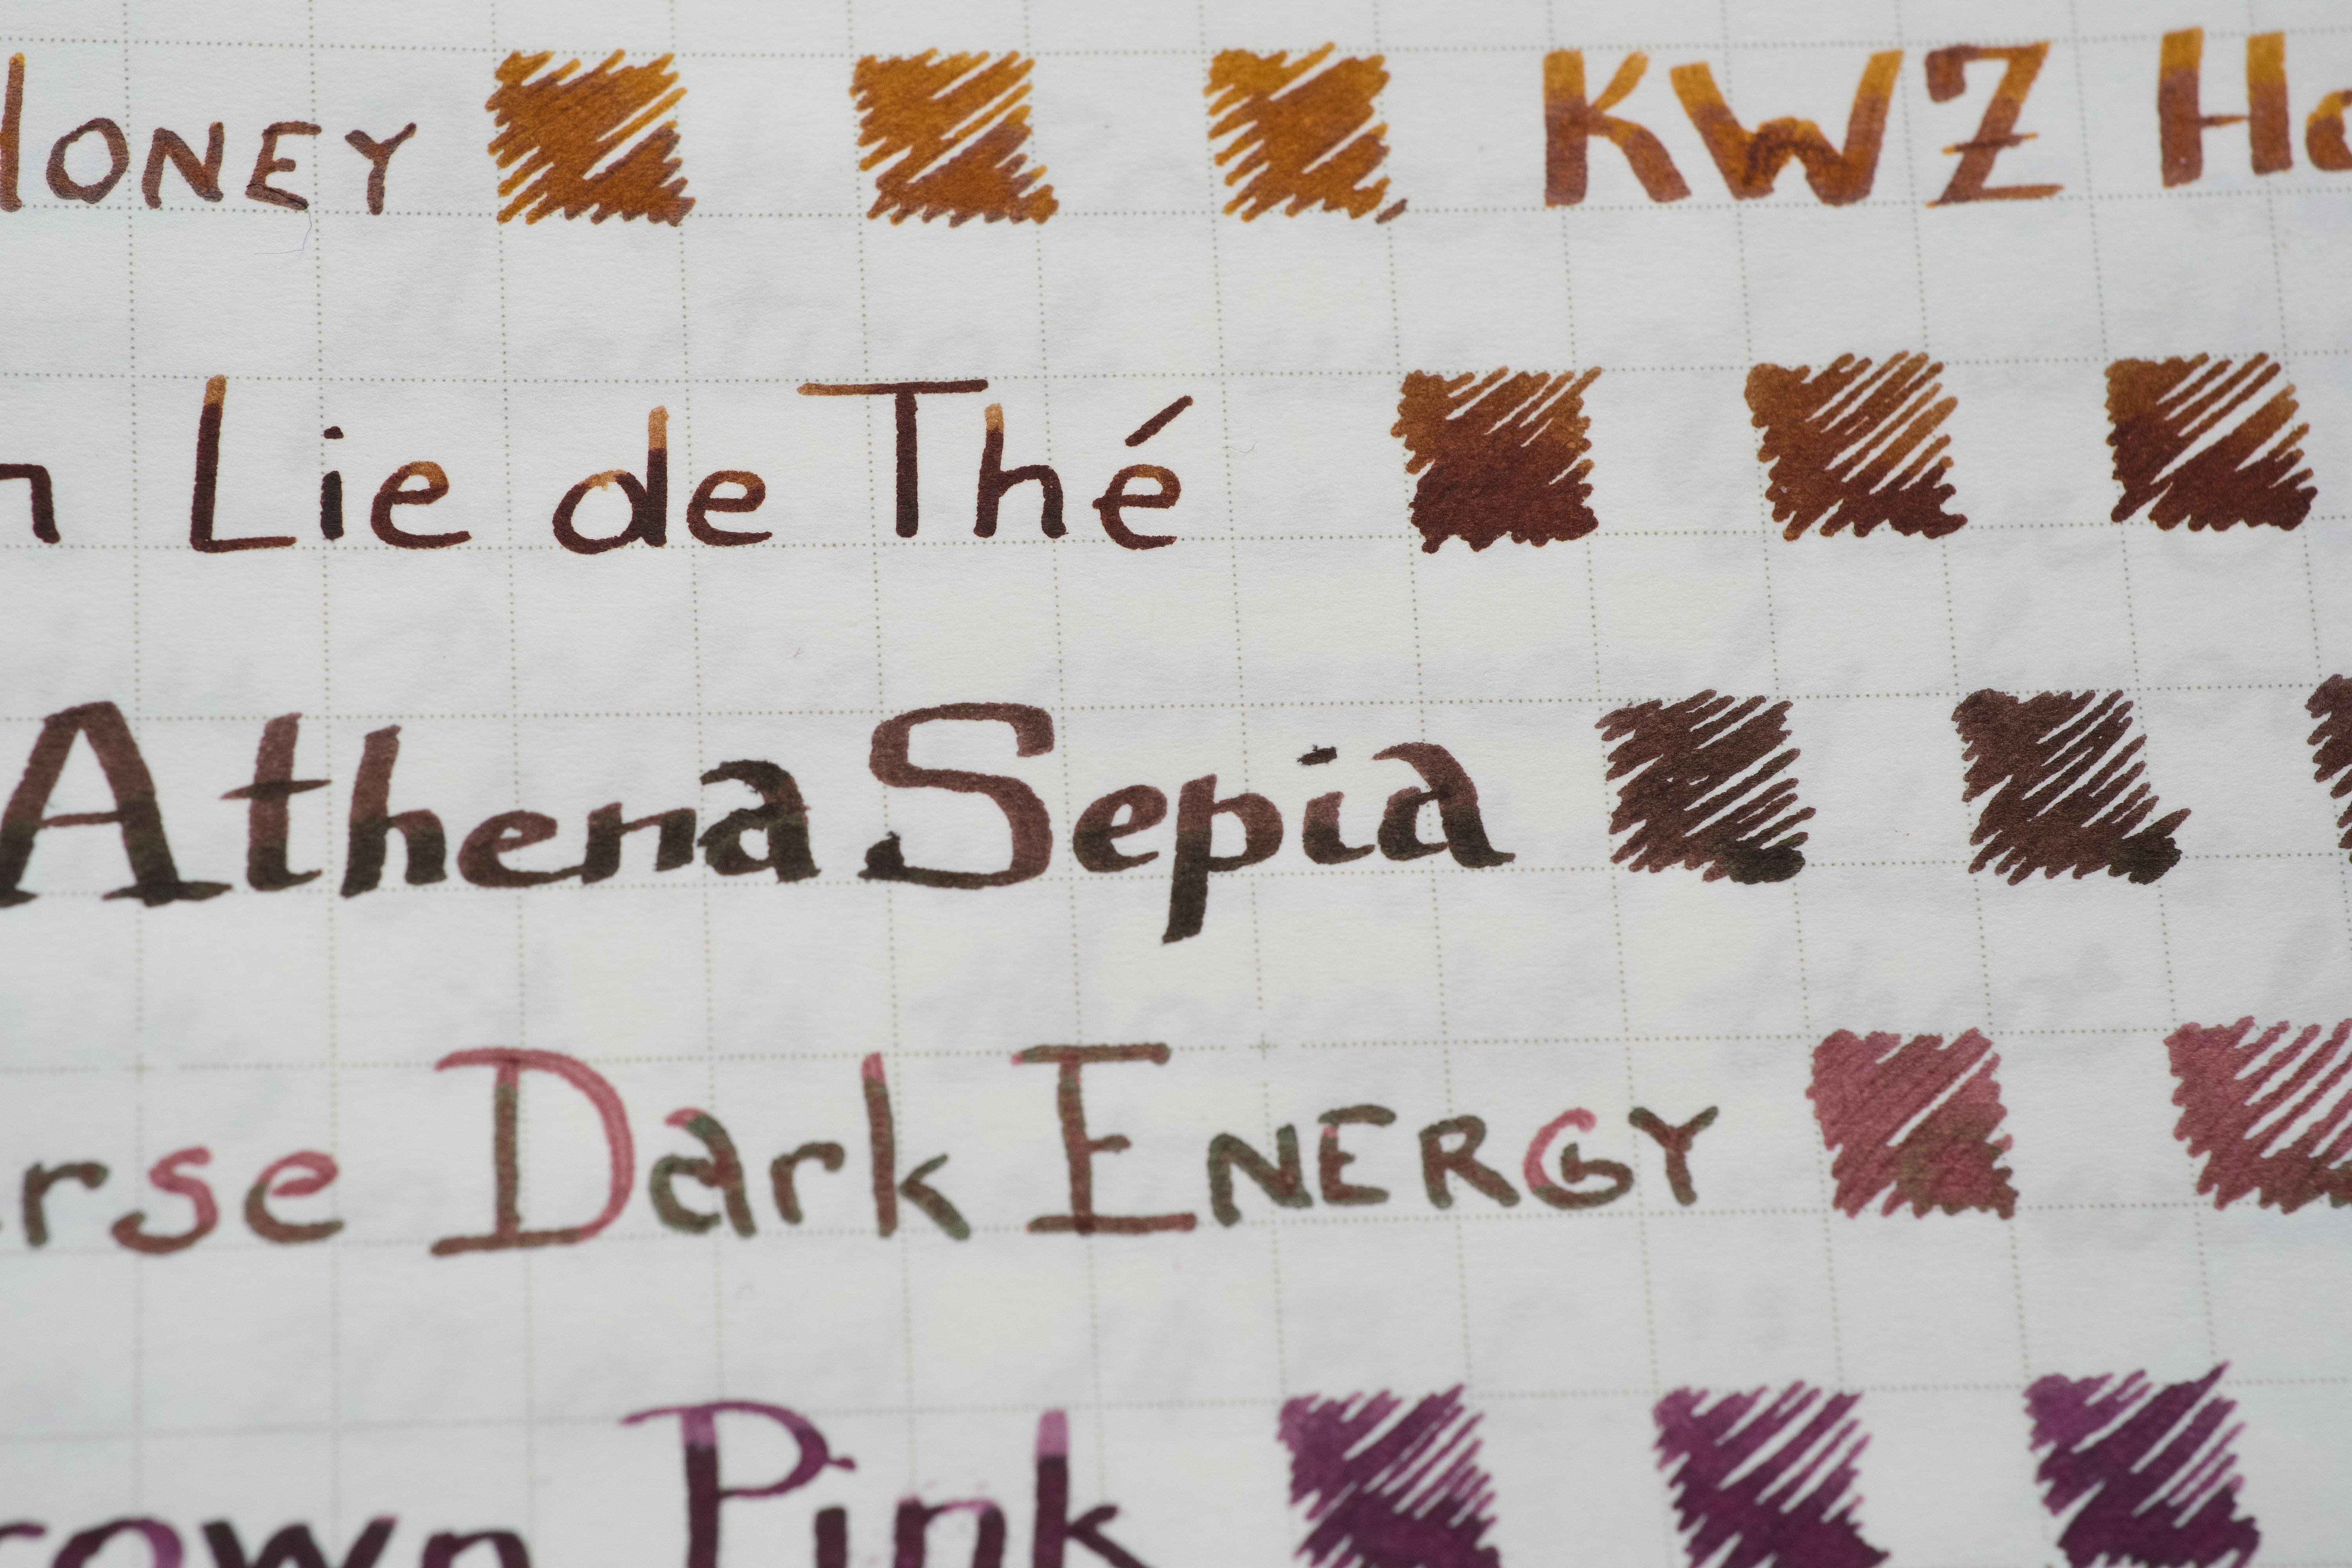 HONEY KWZ Ho
n Lie de Thé
Athena Sepia
rse Dark ENERGY
rown Pink